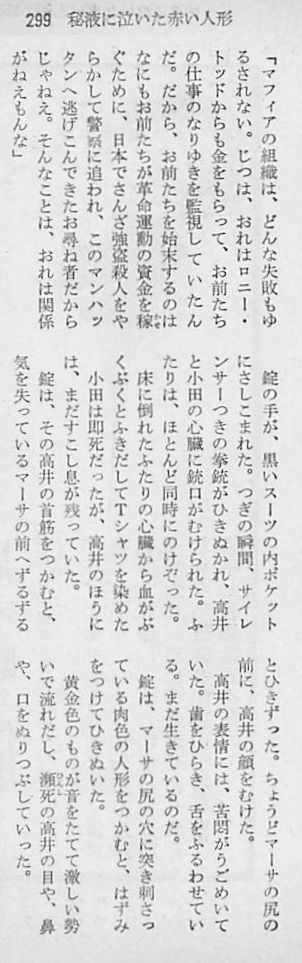 299 秘液に泣いた赤い人形
「マフィアの組織は、どんな失敗もゆ
るされない。じつは、おれはロニー・
トッドからも金をもらって、お前たち
の仕事のなりゆきを監視していたん
だ。だから、お前たちを始末するのは
なにもお前たちが革命運動の資金を稼かせ
ぐために、日本でさんざ強盗殺人をや
らかして警察に追われ、このマンハッ
タンへ逃げこんできたお尋ね者だから
じゃねえ。そんなことは、おれは関係
がねえもんな」
錠の手が、黒いスーツの内ポケット
にさしこまれた。つぎの瞬間、サイレ
ンサーつきの拳銃がひきぬかれ、高井
と小田の心臓に銃口がむけられた。ふ
たりは、ほとんど同時にのけぞった。
床に倒れたふたりの心臓から血がぶ
くぶくとふきだしてTシャツを染めた
小田は即死だったが、高井のほうに
は、まだすこし息が残っていた。
錠は、その高井の首筋をつかむと、
気を失っているマーサの前へずるずる
とひきずった。ちょうどマーサの尻の
前に、高井の顔をむけた。
高井の表情には、苦悶がうごめいて
いた。歯をひらき、舌をふるわせてい
る。まだ生きているのだ。
錠は、マーサの尻の穴に突き刺さっ
ている肉色の人形をつかむと、はずみ
をつけてひきぬいた。
黄金色のものが音をたてて激しい勢
いで流れだし、瀕死ひんしの高井の目や、鼻
や、口をぬりつぶしていった。